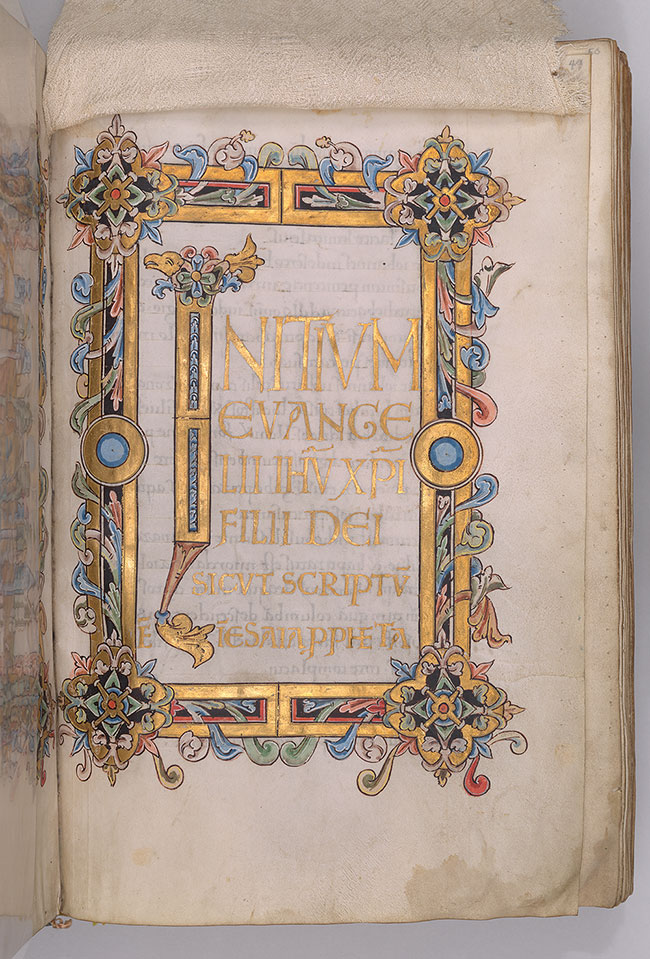 49
INITIVM
EVANGE
LII IHV̄ XP̄I
FILII DEI
SICVT SCRIPTV̄
Ē IESAIA PPHETA